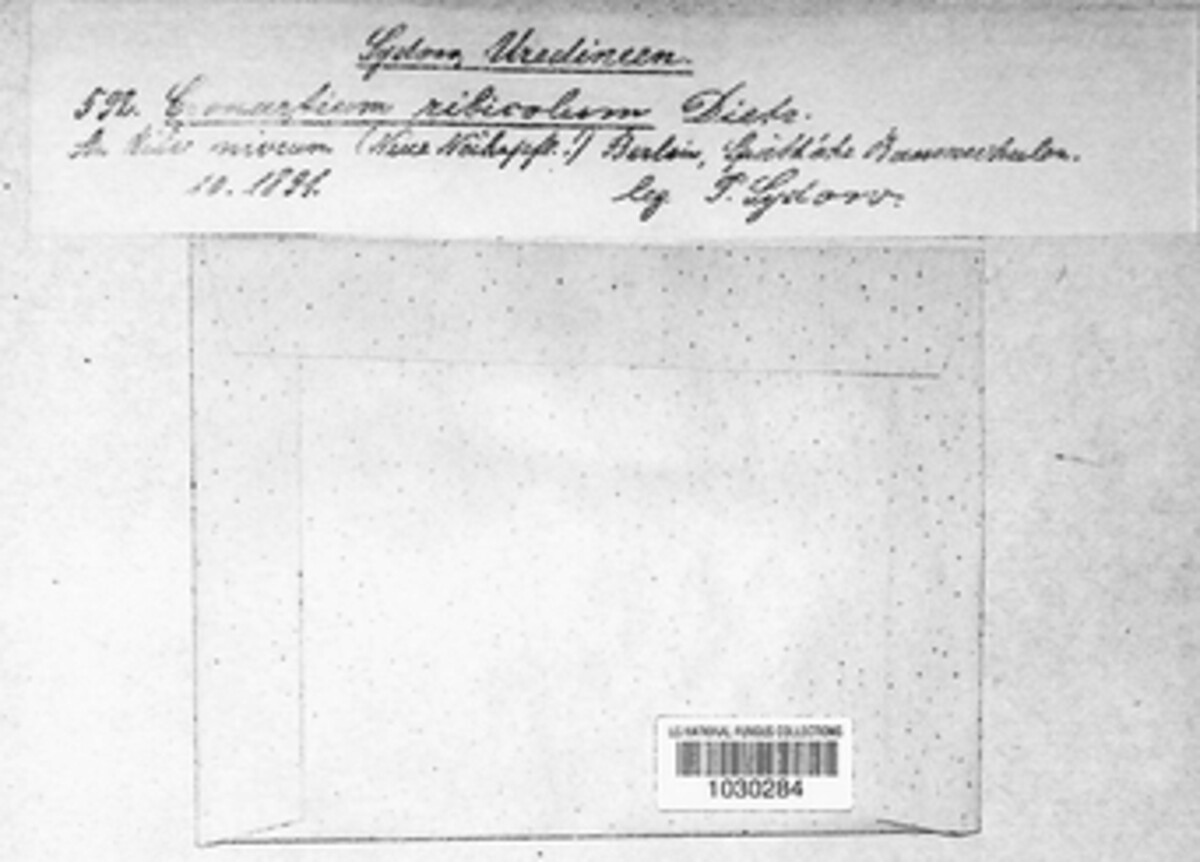 Sydow, Uredineen.
592. Cronartium ribicolum Dietr.
An Ribes niveum (Neue Nährpfl.!) Berlin, Späth'sche Baumschulen.
10. 1891. leg P. Sydow.
US NATIONAL FUNGUS COLLECTIONS
1030284